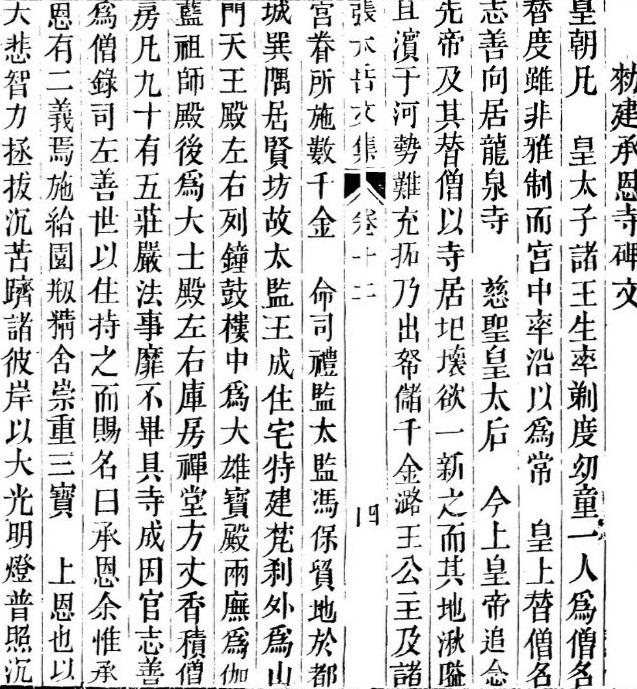 勑建承恩寺碑文
皇朝凡 皇太子諸王生率剃度幼童一人爲僧名
替度雖非雅制而宫中率沿以爲常 皇上替僧名
志善向居龍泉寺 慈聖皇太后 今上皇帝追念
先帝及其替僧以寺居圯壞欲一新之而其地湫隘
且濱于河勢難充拓乃出帑儲千金潞王公主及諸
張太岳文集 卷十二 四
宮眷所施數千金 命司禮監太監馮保貿地於都
城巽隅居賢坊故太監王成住宅特建梵刹外爲山
門天王殿左右列鐘鼓樓中爲大雄寶殿兩廡爲伽
藍祖師殿後爲大士殿左右庫房禪堂方丈香積僧
房凡九十有五莊嚴法事靡不畢具寺成因官志善
爲僧錄司左善世以住持之而賜名曰承恩余惟承
恩有二義焉施給園剏精舍崇重三寶 上恩也以
大悲智力拯拔沉苦躋諸彼岸以大光明燈普照沉